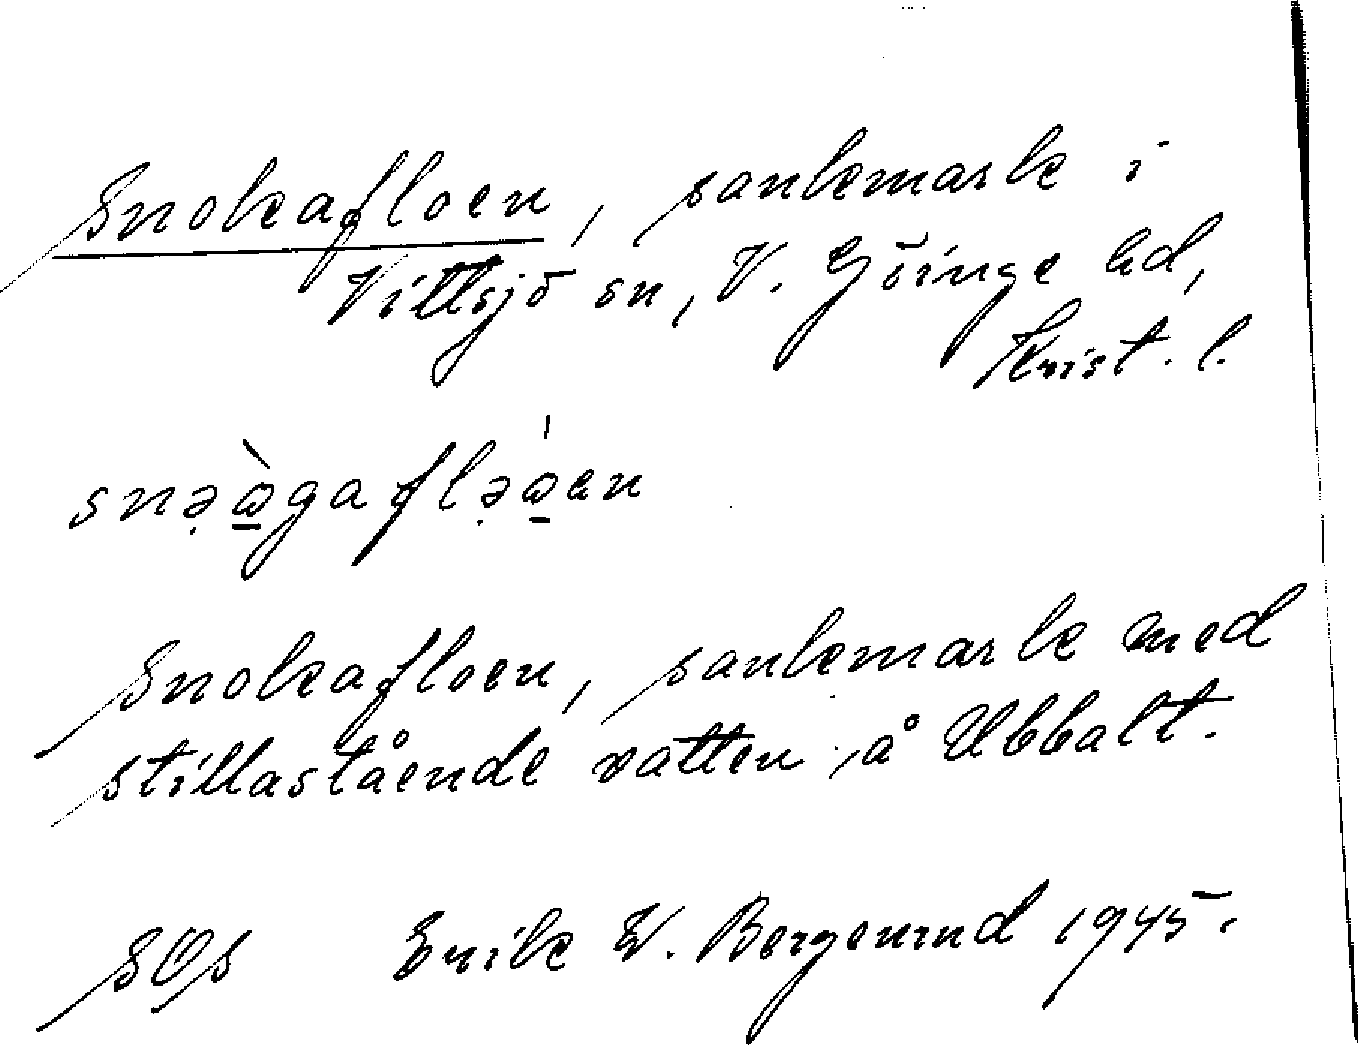 Snokafloen, sankmark i
Vittsjö sn, V. Göinge hd,
Krist. l.
snə̣ὼ̱gaflə̣ώ̱en
Snokafloen, sankmark med
stillastående vatten å Ubbalt.
SOS Erik W. Bergenrud 1945.